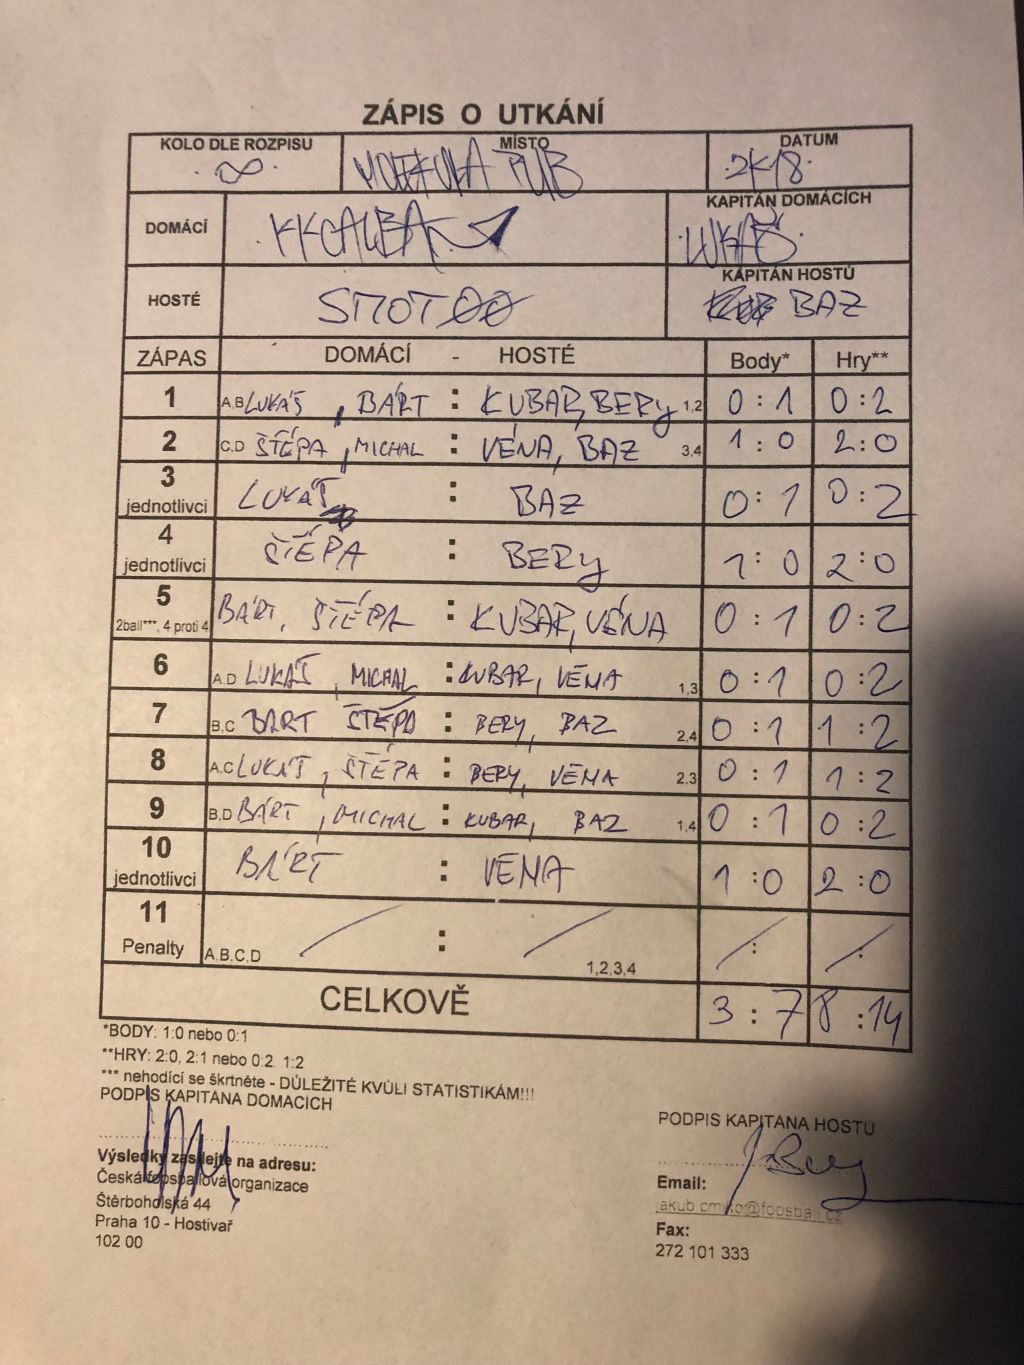 ZÁPIS O UTKÁNÍ
KOLO DLE ROZPISU MÍSTO DATUM
∞ PUB 2K18
DOMÁCÍ KAPITÁN DOMÁCÍCH
LUKÁŠ
HOSTÉ KAPITÁN HOSTŮ
BAZ
ZÁPAS DOMÁCÍ - HOSTÉ Body* Hry**
1 A.B LUKÁŠ, BÁRT : KUBAR, BERY 1,2 0:1 0:2
2 C.D ŠTĚPA, MICHAL : VÉNA, BAZ 3,4 1:0 2:0
3 jednotlivci LUKÁŠ : BAZ 0:1 0:2
4 jednotlivci ŠTĚPA : BERY 1:0 2:0
5 2ball***, 4 proti 4 BÁRT, ŠTĚPA : KUBAR, VÉNA 0:1 0:2
6 A.D LUKÁŠ, MICHAL : KUBAR, VÉNA 1,3 0:1 0:2
7 B.C BÁRT ŠTĚPA : BERY, BAZ 2,4 0:1 1:2
8 A.C LUKÁŠ, ŠTĚPA : BERY, VÉNA 2.3 0:1 1:2
9 B.D BÁRT, MICHAL : KUBAR, BAZ 1,4 0:1 0:2
10 jednotlivci BÁRT : VÉNA 1:0 2:0
11 Penalty A.B.C.D / : / 1,2,3,4 /: /:
CELKOVĚ 3:7 8:14
*BODY: 1:0 nebo 0:1
**HRY: 2:0, 2:1 nebo 0:2, 1:2
*** nehodící se škrtněte - DŮLEŽITÉ KVŮLI STATISTIKÁM!!!
PODPIS KAPITANA DOMACICH
PODPIS KAPITANA HOSTU
Výsledky zasílejte na adresu:
Česká foosballová organizace
Štěrboholská 44
Praha 10 - Hostivař
102 00
Email:
Fax:
272 101 333